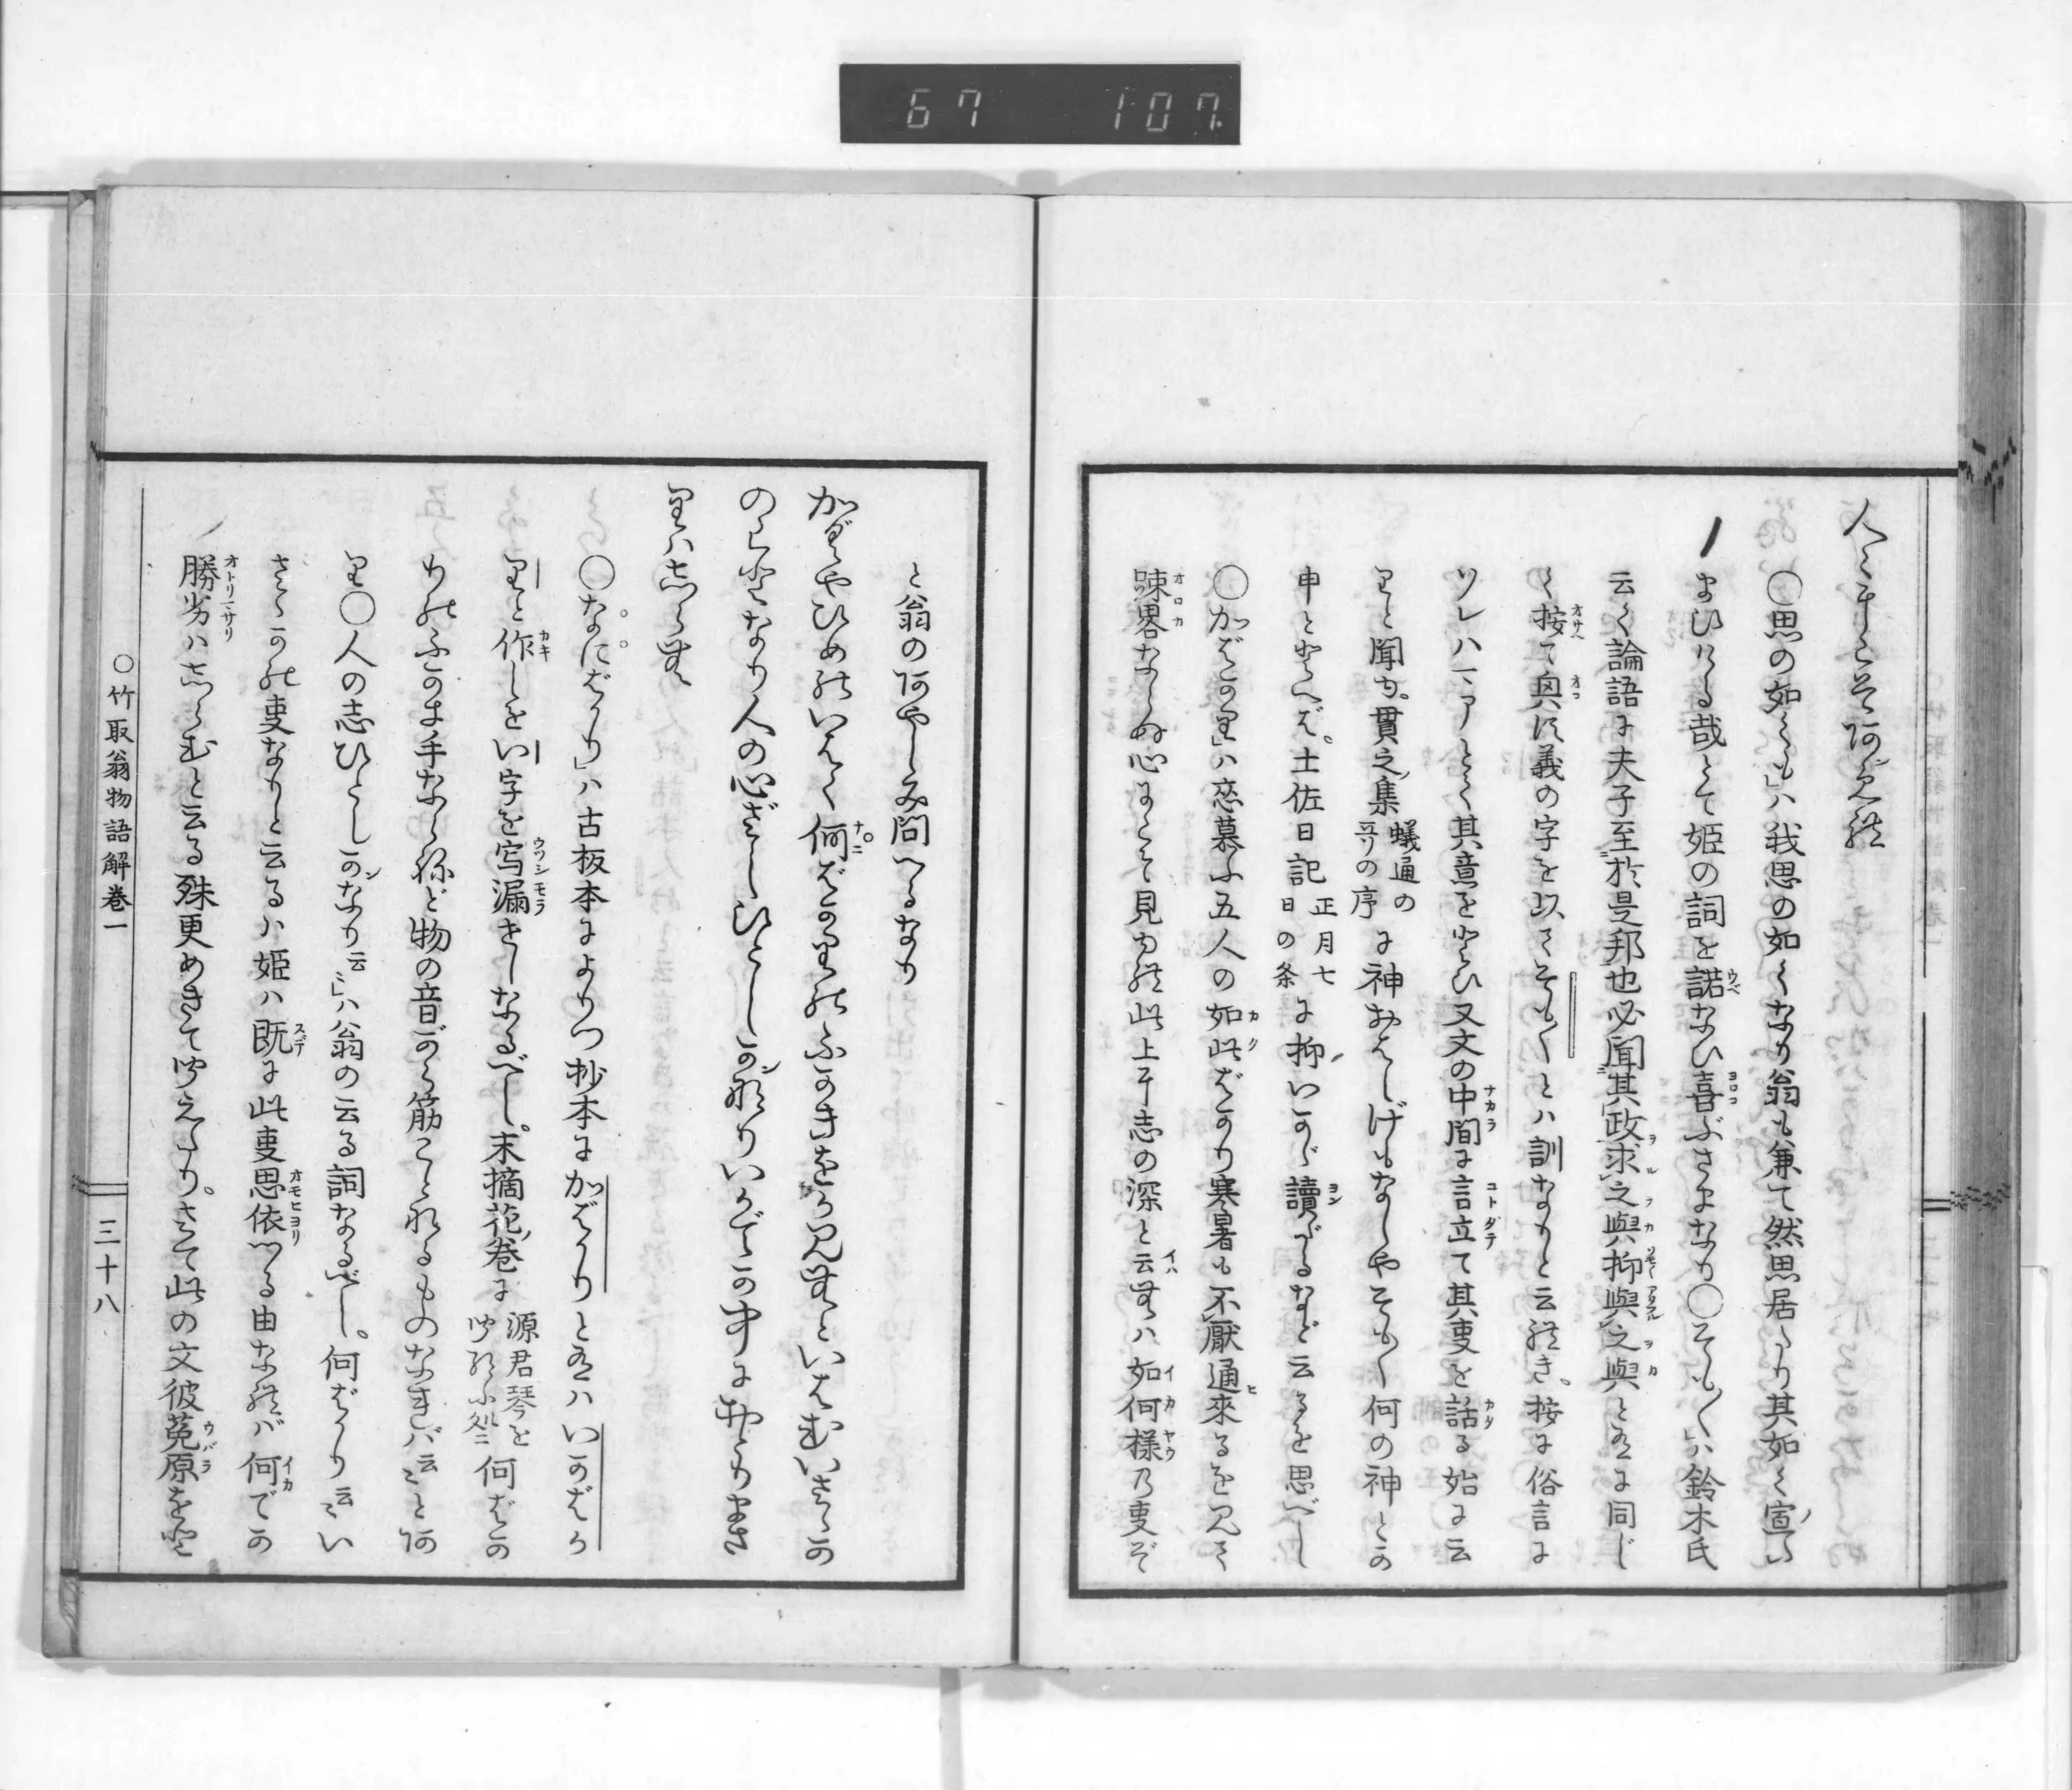 67 107
人々にこそあめれ
○思の如くも」ハ我思の如くなり翁も兼て然思居たり其如く宣い
まひける哉とて姫の詞を諾なひ喜ぶさまなり○そも〳〵」ハ鈴木氏
云く論語に夫子至於是邦也必聞其政求之與抑與之與とあるに同じ
く按て與に義の字を以てそも〳〵とハ訓なりと云れき、按に俗言に
ソレハマアとて其意をとひ又文の中間に言立て其事を話る始に云
りと聞ゆ。貫之集蟻通の哥の序に神おはしげもなしやそも〳〵何の神とか
申ととへば、土佐日記正月七日の条に抑いかゞ讀だるなど云るを思べし
○かばかり」ハ恋慕ふ五人の如此ばかり寒暑も不厭通來るを見て
踈畧ならぬ心にこそ見ゆれ此上に志の深と云むハ如何様乃事ぞ
と翁のあやしみ問へるなり
かぐやひめのいはく何ばかりのふかきをか見むといはむいさゝか
のことなり人の心ざしひとしかんなりいかでか中におとりまさ
りハしらむ
○なにばかり」ハ古板本によりつ抄本にかばかりとあるハいかばか
りと作しをい字を写漏せしなるべし。末摘花巻に源君琴を聞給ふ処ニ何ばか
りのふかき手ならねど物の音がら筋ことなるものなれバ云々とあ
り○人の志ひとしかンなり云々」ハ翁の云る詞なるべし。何ばかり云々い
さゝかの事なりと云るハ姫ハ既に此事思依つる由なれバ何でか
勝劣ハしらむと云る殊更めきて聞えたり。さて此の文彼菟原をと
○竹取翁物語解巻一
三十八